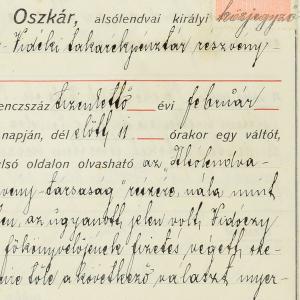 Oszkár, alsólendvai királyi közjegyző
Vidéki takarékpénztár részvény-
enczszáz tizenkettő évi február
napján, dél előtt 11 órakor egy váltót,
ulsó oldalon olvasható az „Alsólendva-
vény-társaság" részére, nála mint
en, az ugyanott jelen volt, Vidóczy
főkönyvelőjének fizetés végett, de
tőle a következő választ nyer-